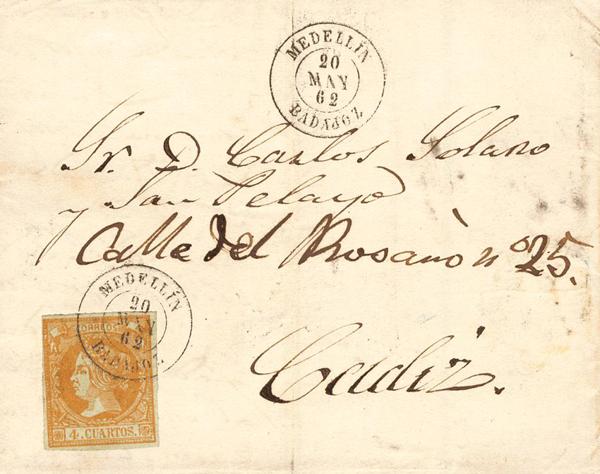 MEDELLÍN
20
MAY
62
BADAJOZ
Sr. D. Carlos Solano
y San Pelayo
Calle del Rosario nº 25.
Cadiz.
MEDELLÍN
20
MAY
62
BADAJOZ
CORREOS
4 CUARTOS.